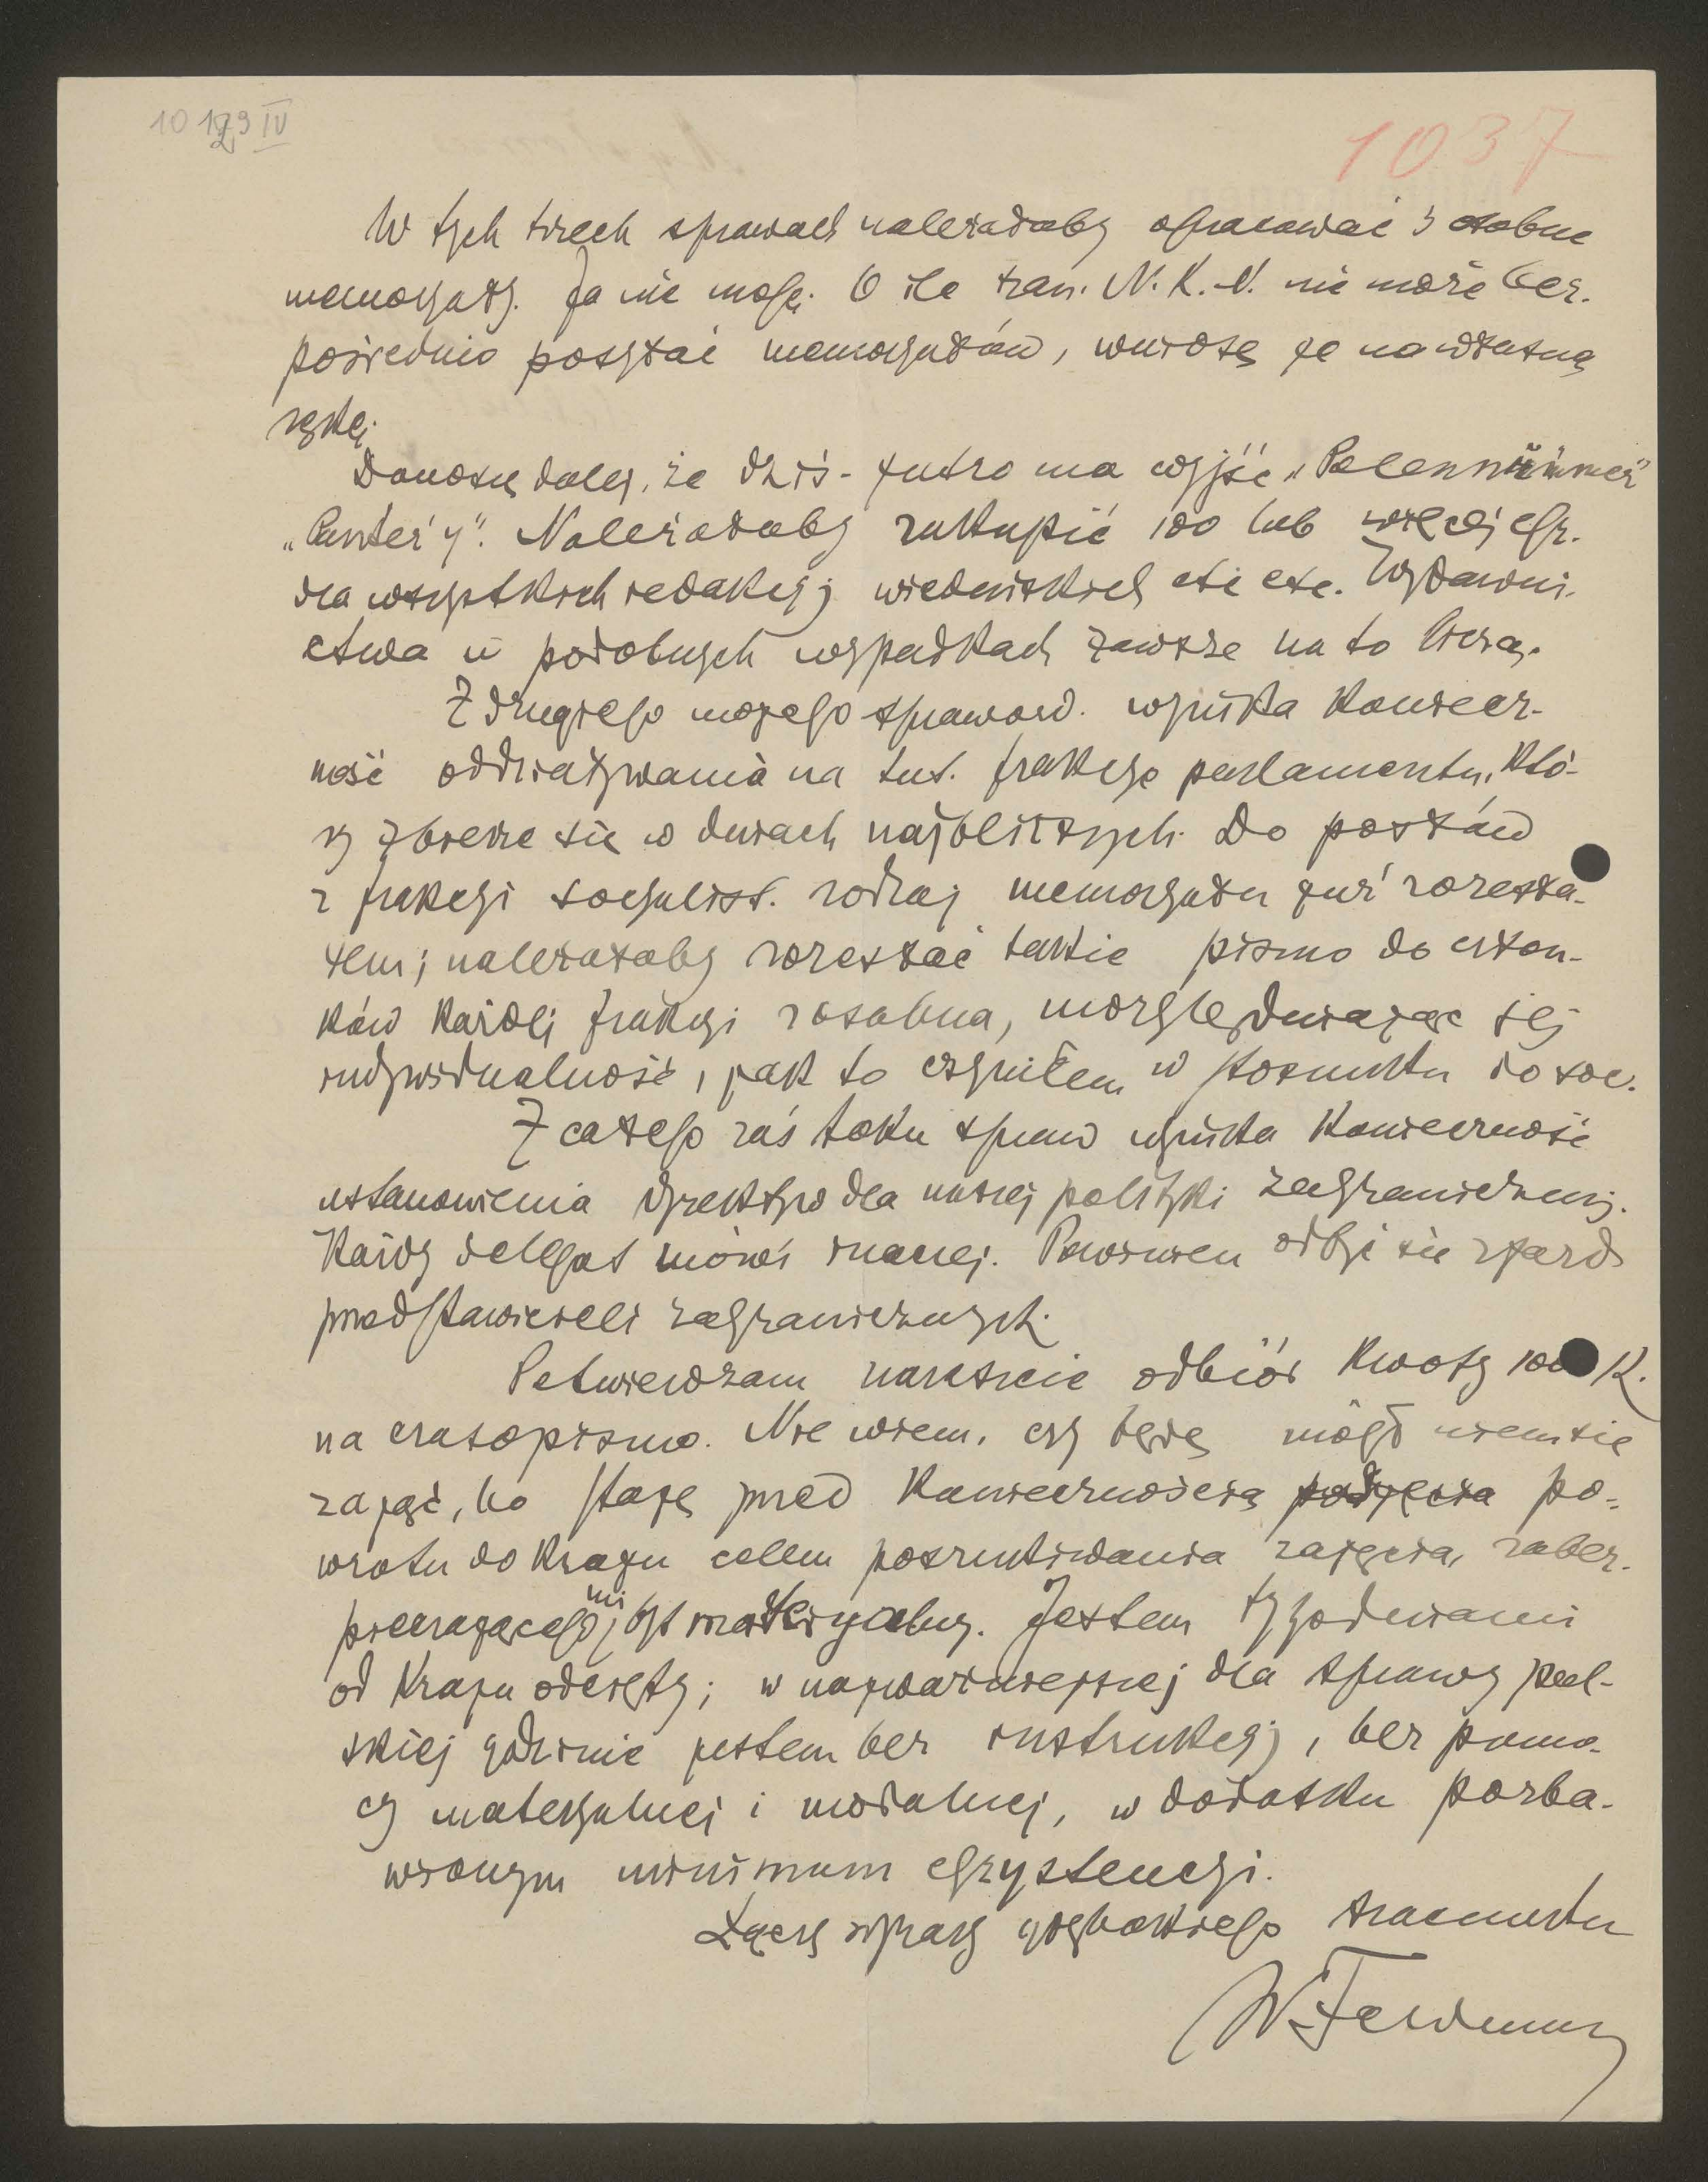 10 129 IV
1037
W tych trzech sprawach należałoby opracować 3 osobne
memoryały. Ja nie mogę. O ile szan. N.K.N. nie może bez-
pośrednio posyłać memoryałów, wniosę je na własną
rękę.
Donoszę dalej, że dziś-jutro ma wyjść „Polennummer"
„Panter'y". Należałoby zakupić 100 lub więcej egz.
dla wszystkich redakcyj wiedeńskich etc etc. Wydawni-
ctwa w podobnych wypadkach zawsze na to liczą.
Z drugiego mojego sprawozd. wynika koniecz-
ność oddziaływania na tut. frakcye parlamentu, któ-
ry zbierze się w dniach najbliższych. Do posłów
z frakcyi socyalist. rodzaj memoryału już rozesła-
łem; należałoby rozesłać takie pismo do człon-
ków każdej frakcyi z osobna, uwzględniając jej
indywidualność, jak to czyniłem w stosunku do soc.
Z całego zaś toku spraw wynika konieczność
ustanowienia dyrektyw dla naszej polityki zagranicznej.
Każdy delegat mówi inaczej. Powinien odbyć się zjazd
przedstawicieli zagranicznych.
Potwierdzam nareszcie odbiór kwoty 1000 K.
na czasopismo. Nie wiem, czy będę mógł niem się
zająć, bo staję przed koniecznością podjęcia po-
wrotu do kraju celem poszukiwania zajęcia, zabez-
pieczającego mi byt materyalny. Jestem tygodniami
od kraju odcięty; w najważniejszej dla sprawy pol-
skiej godzinie jestem bez instrukcyj, bez pomo-
cy materyalnej i moralnej, w dodatku pozba-
wionym minimum egzystencyi.
Łączę wyrazy głębokiego szacunku
WFeldman